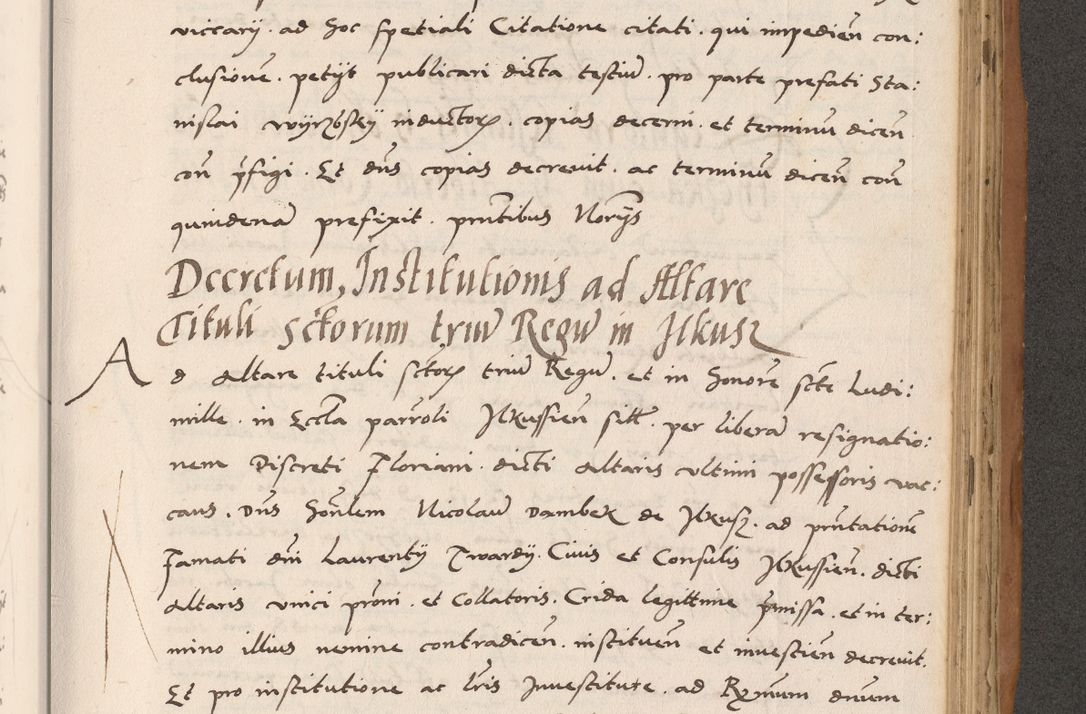 viccarij · ad hoc spetiali Citatione citati · qui impedień con:
clusionē · petijt publicari dicta testiū · pro parte prefati Sta:
nislai wijrzbskij inductorꝫ · copias decerni · et terminū diceń
coń p̄figi · Et dn̄s copias decrevit · ac terminū diceń coń
quindenā prefixit · pn̄tibus Norijs
Decretum, Institutionis ad Altare
Tituli sctorum triū Regū in Ilkusz
Ad Altare tituli sctorꝫ triū Regū · et in honorē scte Ludi:
mille · in Eccla parroli Ilkussień sitt · per liberā resignatio:
nem Discreti Floriani · dicti Altaris vltimi possessoris vac:
cans · Dn̄s honlem Nicolaū Dambek de Ilkusz · ad pn̄tationē
Famati dn̄i Laurentij Twardij · Civis et Consulis Ilkussień · dicti
altaris vnici proni · et Collatoris · Crida legittime p̄missa · et in ter:
mino illius nemine contradiceń · instituēn et investień decrevit ·
Et pro institutione ac lr̄is Investiture · ad Rmum dnum